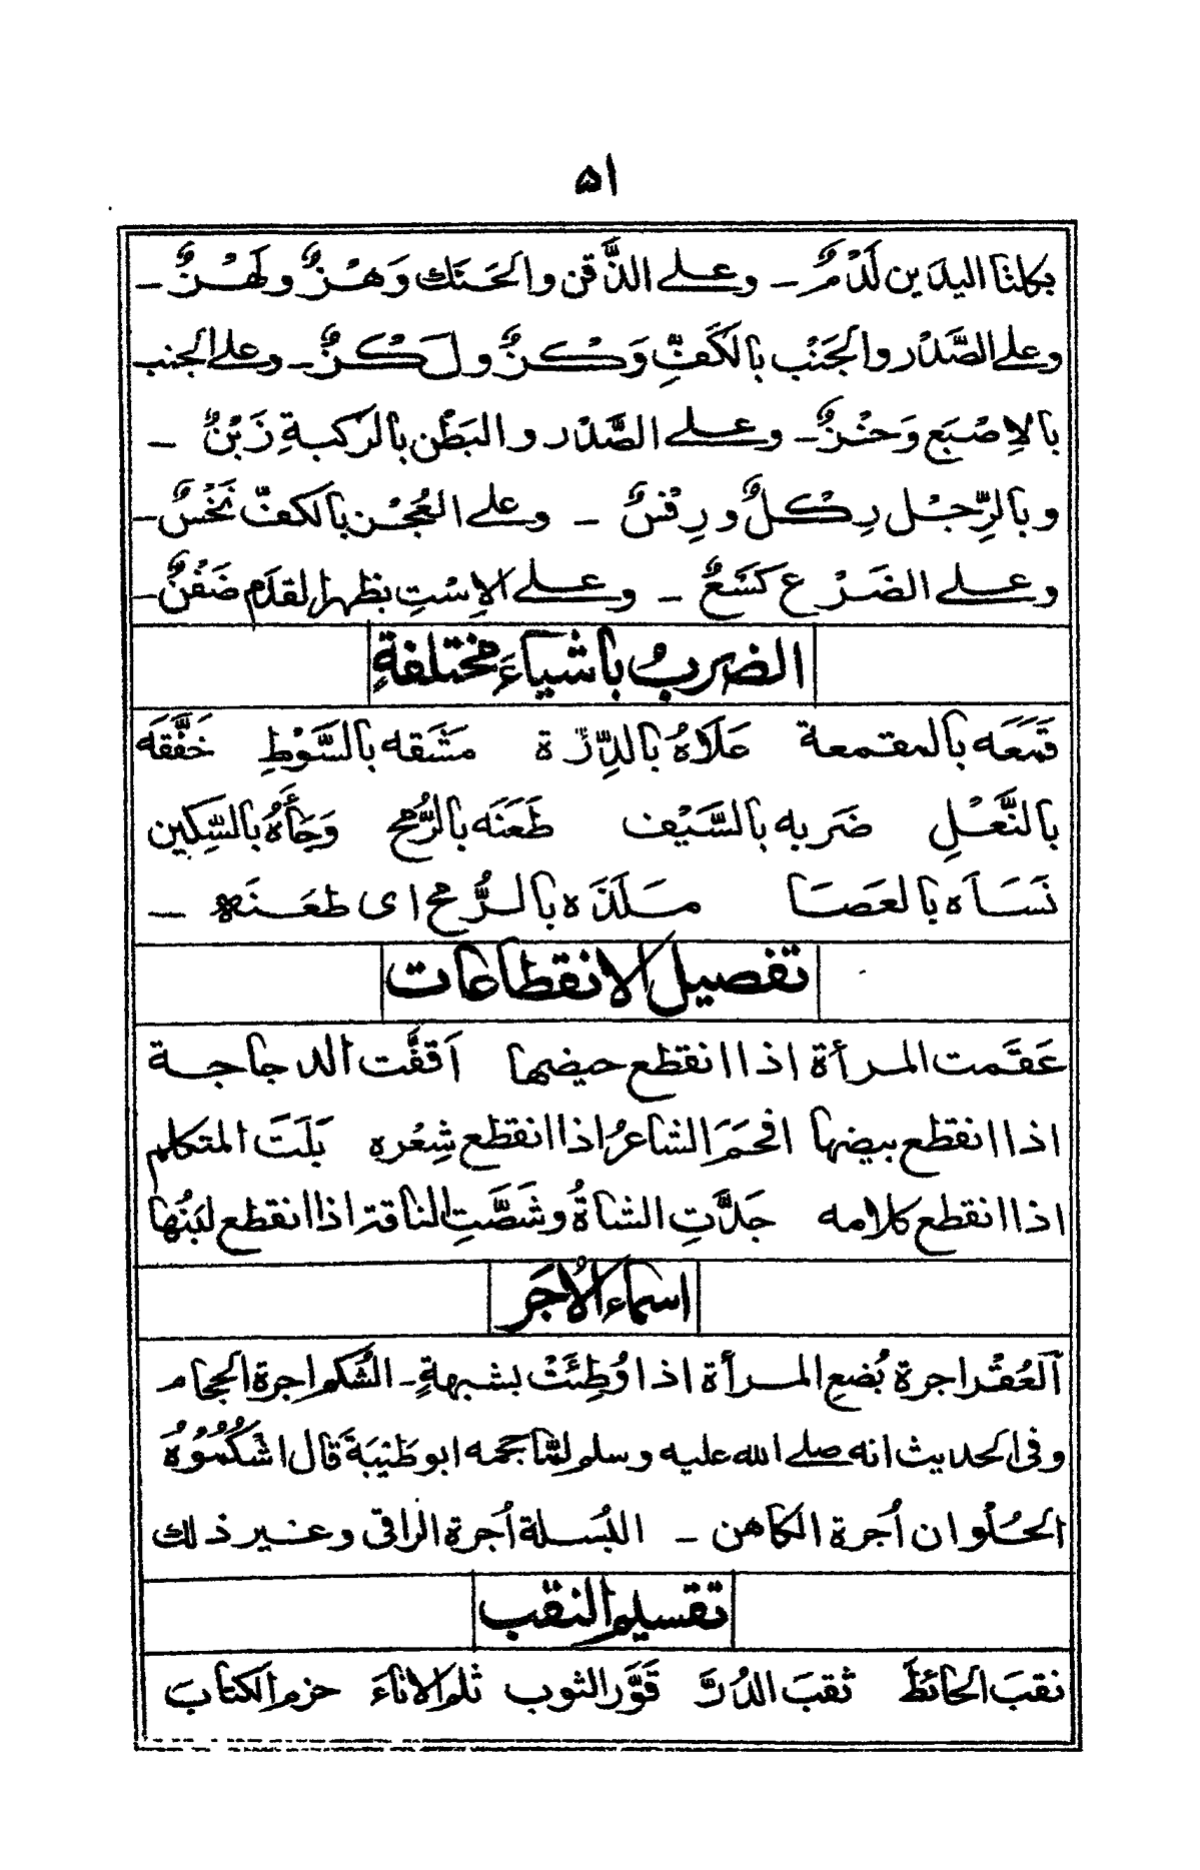 ۵۱
بكلتا اليدين لَدْمٌ ـ وعلى الذَّقن والحَنَك وَهْزٌ ولَهْزٌ ـ
وعلى الصَّدْر والجَنْب بالكَفِّ وَكْزٌ ولَكْزٌ ـ وعلى الجنب
بالاِصْبَع وَخْزٌ ـ وعلى الصَّدْر والبَطْن بالرُكبةِ زَبْنٌ ـ
وبالرِّجْل رِكْلٌ ورِفْسٌ ـ وعلى العُجْز بالكفّ نَخْسٌ ـ
وعلى الضَرْع كَسْعٌ ـ وعلى الاِسْتِ بظهر القدَم ضَفْنٌ ـ
الضربُ باشياءَ مختلفةٍ
قَمَعَه بالمقمعة عَلَاهُ بالدِّرَّة مَشَقه بالسَّوْطِ خَفَّقَه
بالنَّعْلِ ضَربه بالسَّيْف طَعَنَه بالرُّمح وَجَأَهُ بالسِّكين
نَسَاَه بالعَصَا مَلَذَه بالرُّمح اى طعَنَه ـ
تفصيل الانقطاعات
عَقَمت المرأة اذا انقطع حيضها اَقفَّت الدجاجة
اذا انقطع بيضها افحَمَ الشاعرُ اذا انقطع شِعْره بَلَتَ المتكلم
اذا انقطع كلامه جَدَّتِ الشاةُ وشَصَّتِ الناقة اذا انقطع لبَنُها
اسماء الاُجَر
اَلعُقْر اجرة بُضعِ المرأة اذا وُطِئَتْ بشبهةٍ ـ الشُكم اجرة الحجام
وفى الحديث انه صلى الله عليه وسلم لمّا حجمه ابو طَيبَةَ قال اشْكُمُوْهُ
الحُلْوان اُجرة الكاهن ـ البُسلة اُجرة الراقى وغير ذلك
تقسيم النقب
نقبَ الحائطَ ثقبَ الدُرَّ قَوَّر الثوب ثلم الاناءَ خزم الكتابَ